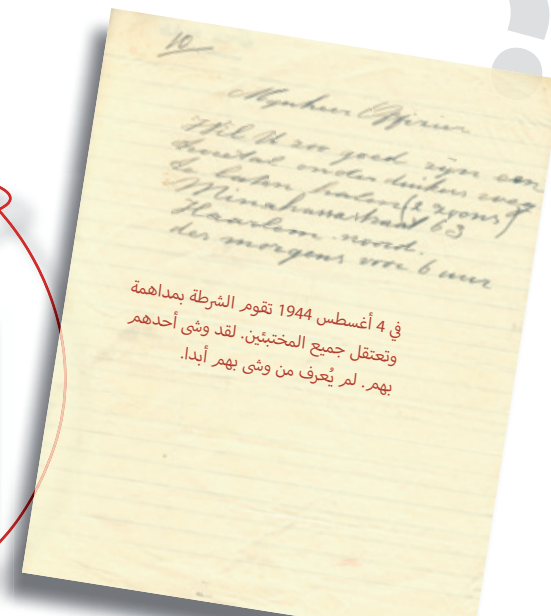 10
Mynheer Offisier
Wil U zoo goed zyn een
te laten halen (2 zoons)
Minahassastraat 63
Haarlem noord.
des morgens voor 6 uur
في 4 أغسطس 1944 تقوم الشرطة بمداهمة
وتعتقل جميع المختبئين. لقد وشى أحدهم
بهم. لم يُعرف من وشى بهم أبدا.